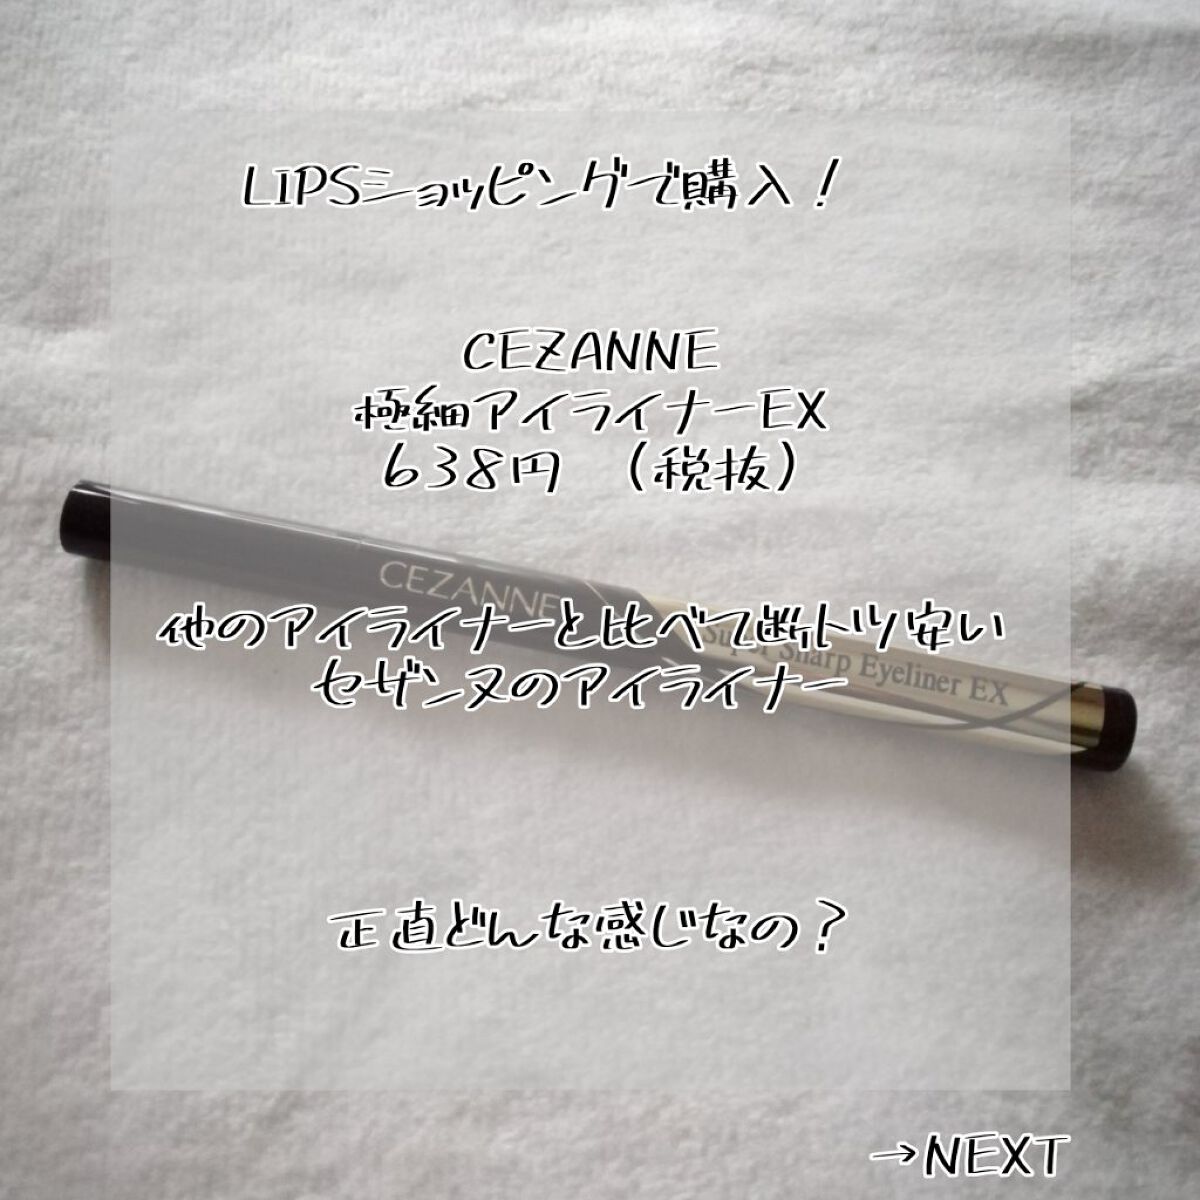 LIPSショッピングで購入！
CEZANNE
極細アイライナーEX
638円 （税抜）
CEZANNE
Super Sharp Eyeliner EX
他のアイライナーと比べて断トツ安い
セザンヌのアイライナー
正直どんな感じなの？
→NEXT